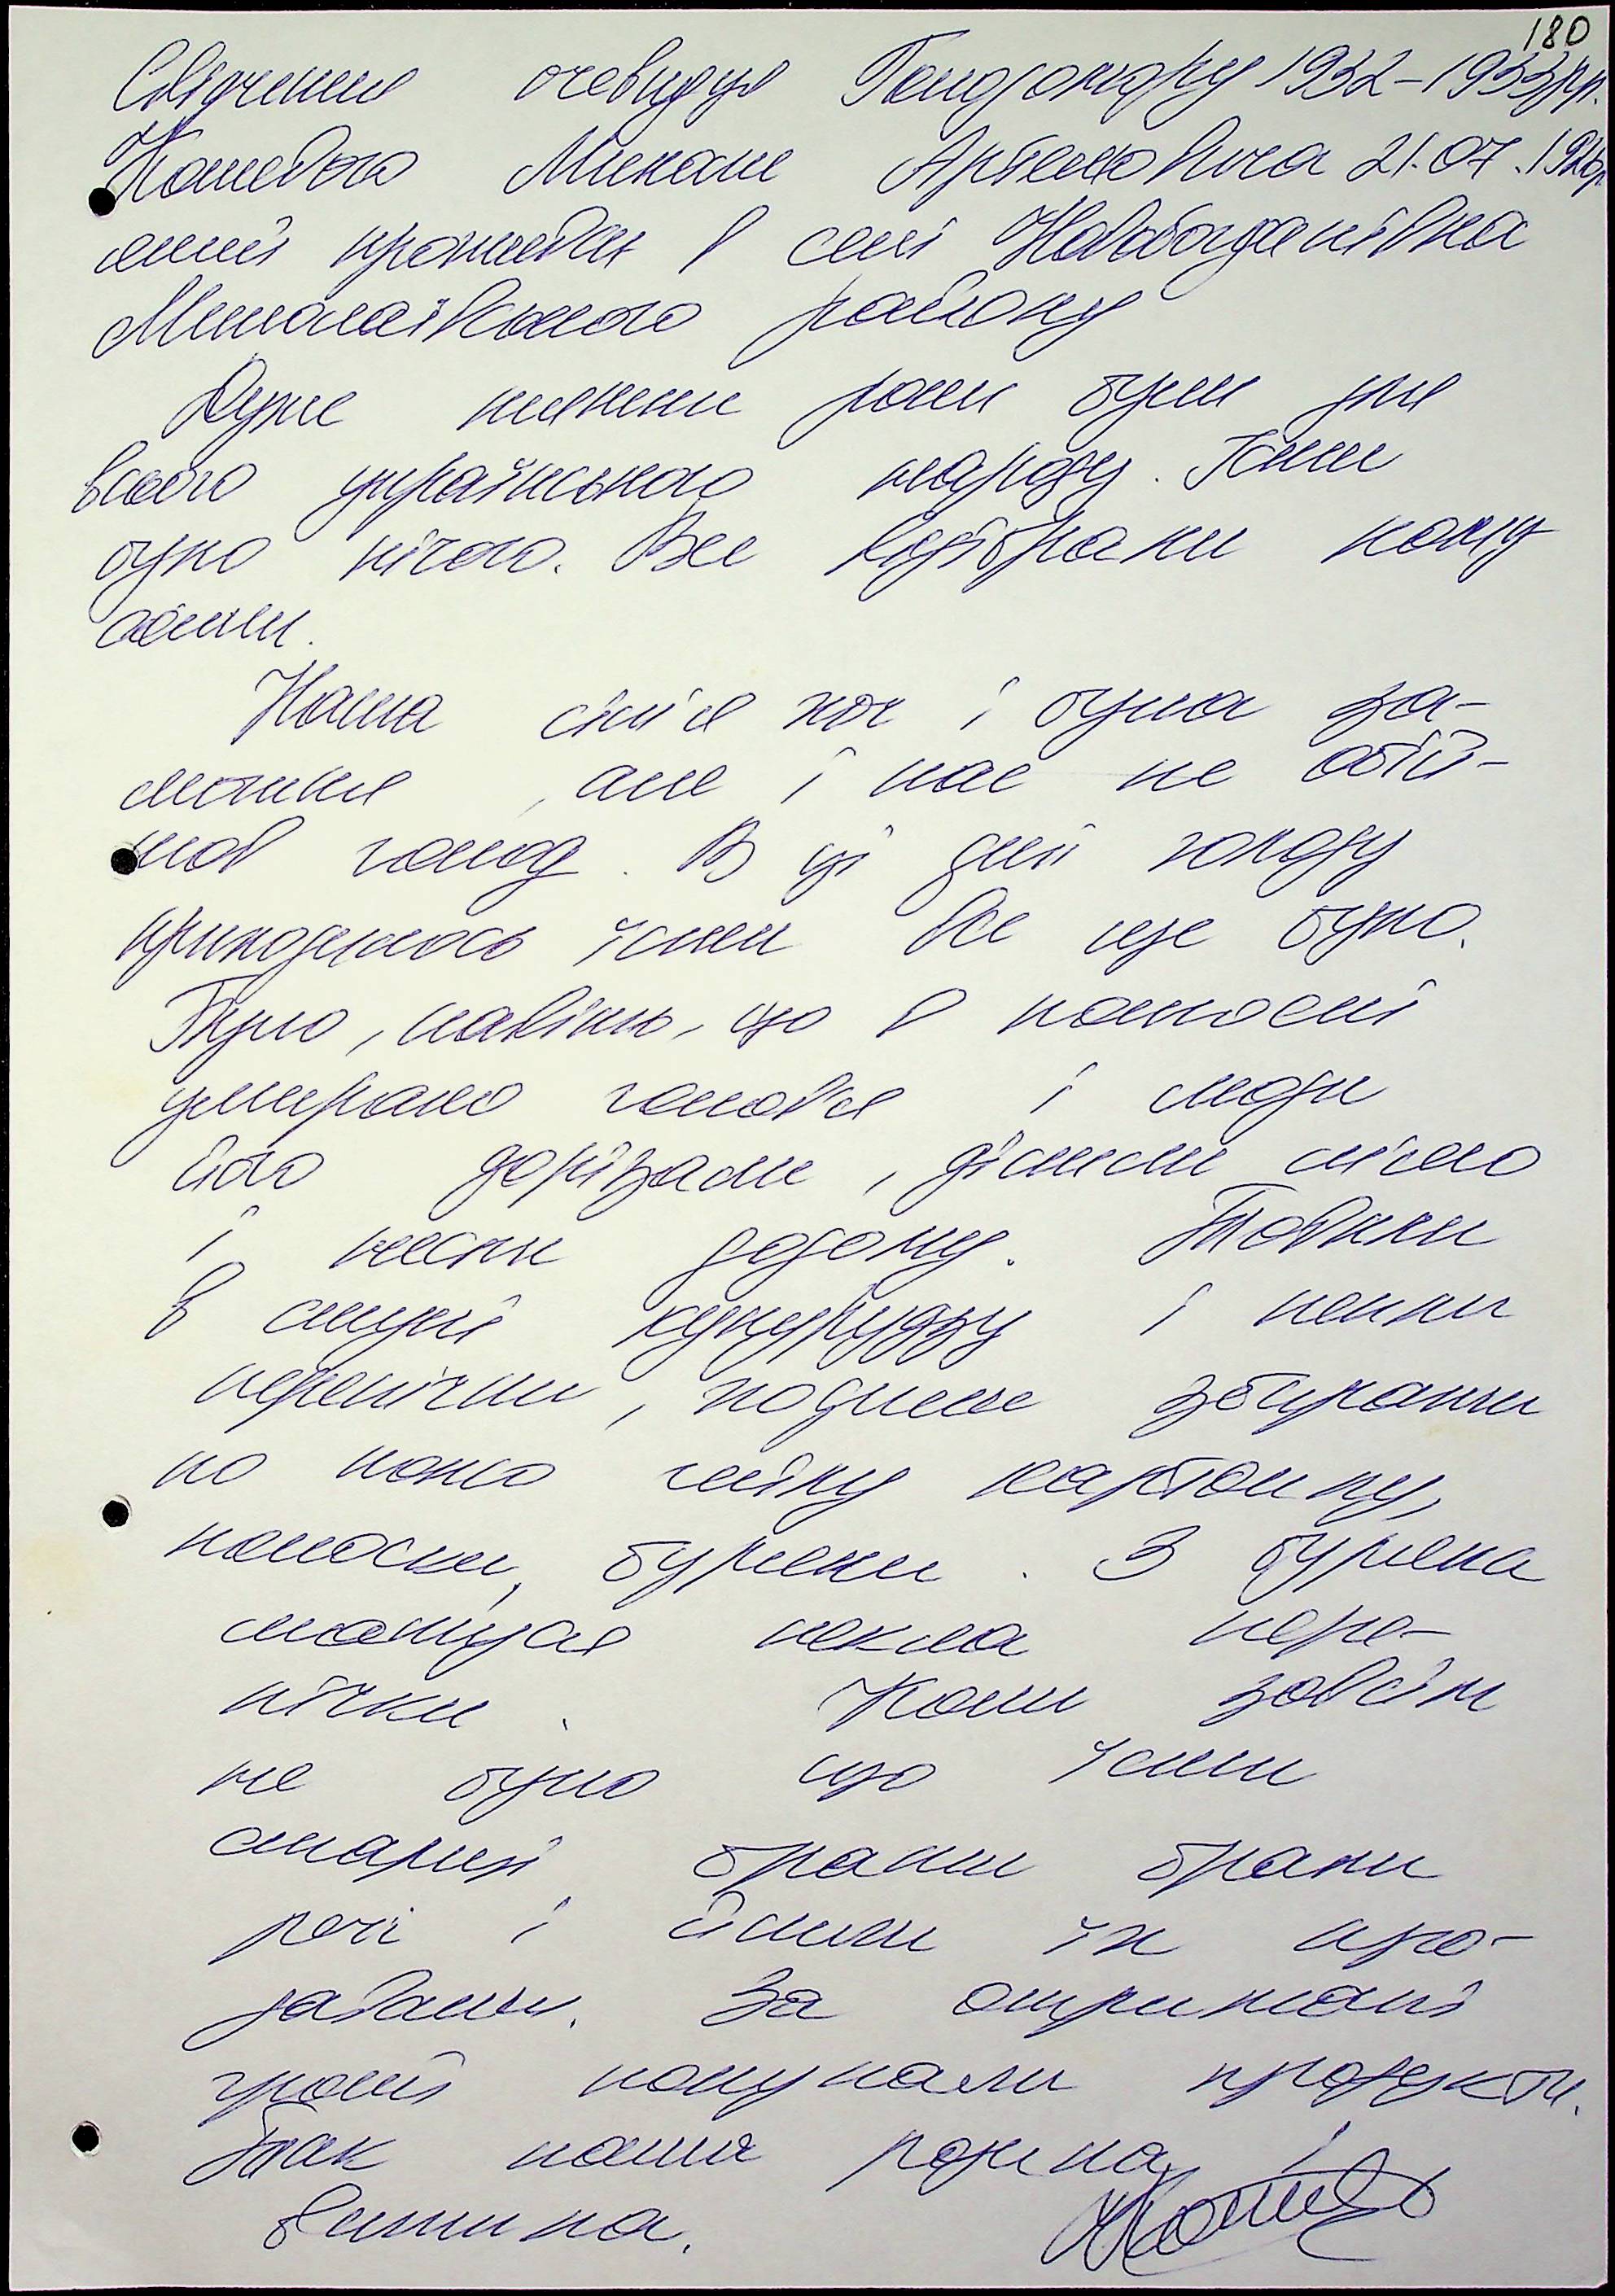 180
Свідчення очевидця Голодомору 1932-1933рр.
Миколи Артемовича 21.07.1926р
який проживав в селі Новобогданівка
Миколаївського району
Дуже тяжкі роки були для
всього українського народу. Їсти
було нічого. Все відібрали кому
сти.
Наша сім'я хоч і була за-
можня, але і нас не обій-
шов голод. В ці дні голоду
приходилось їсти все що було.
Було, навіть, що в колгоспі
умирало і люди
його дорізали, ділили м'ясо
і несли додому. Товкли
в ступі кукурудзу і пекли
перепічки, позднее збирали
по полю гнилу картошку,
колоски, буряки. З буряка
матуся пекла пере-
пічки. Коли зовсім
не було що їсти
старші брати брали
речі і йшли їх про-
давати. За отримані
гроші покупали продукти.
Так наша родина і
вижила.